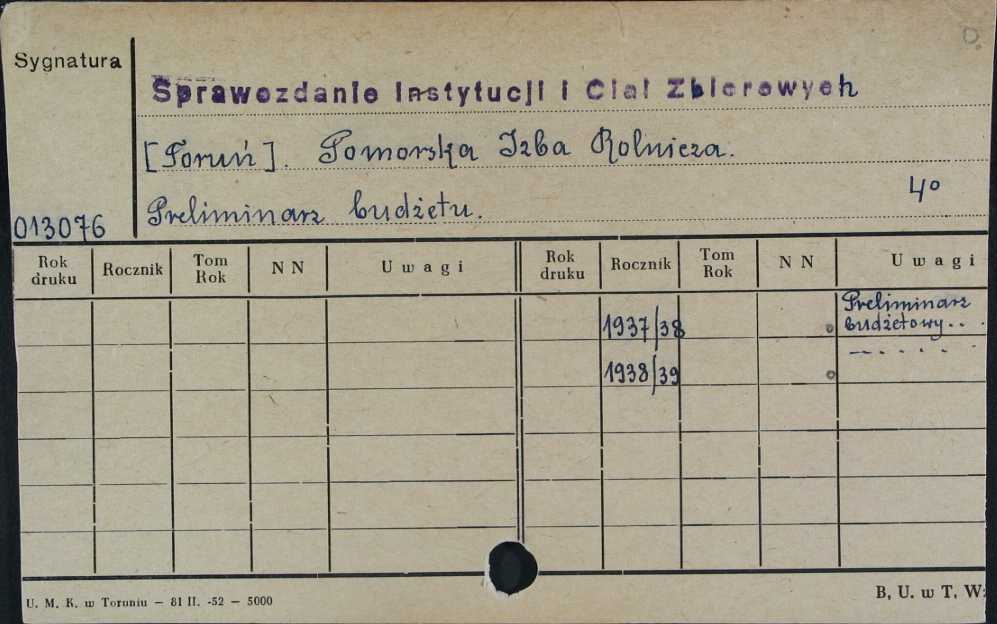 D.
Sygnatura
Sprawozdanie Instytucji i Ciał Zbiorowych
[Toruń]. Pomorska Izba Rolnicza.
4º
013076 Preliminarz budżetu.
Rok druku Rocznik Tom Rok N N Uwagi Rok druku Rocznik Tom Rok N N Uwagi
1937/38 o Preliminarz budżetowy . .
1938/39 o — . . . . .
U. M. K. w Toruniu — 81 II. -52 — 5000
B. U. w T. W: